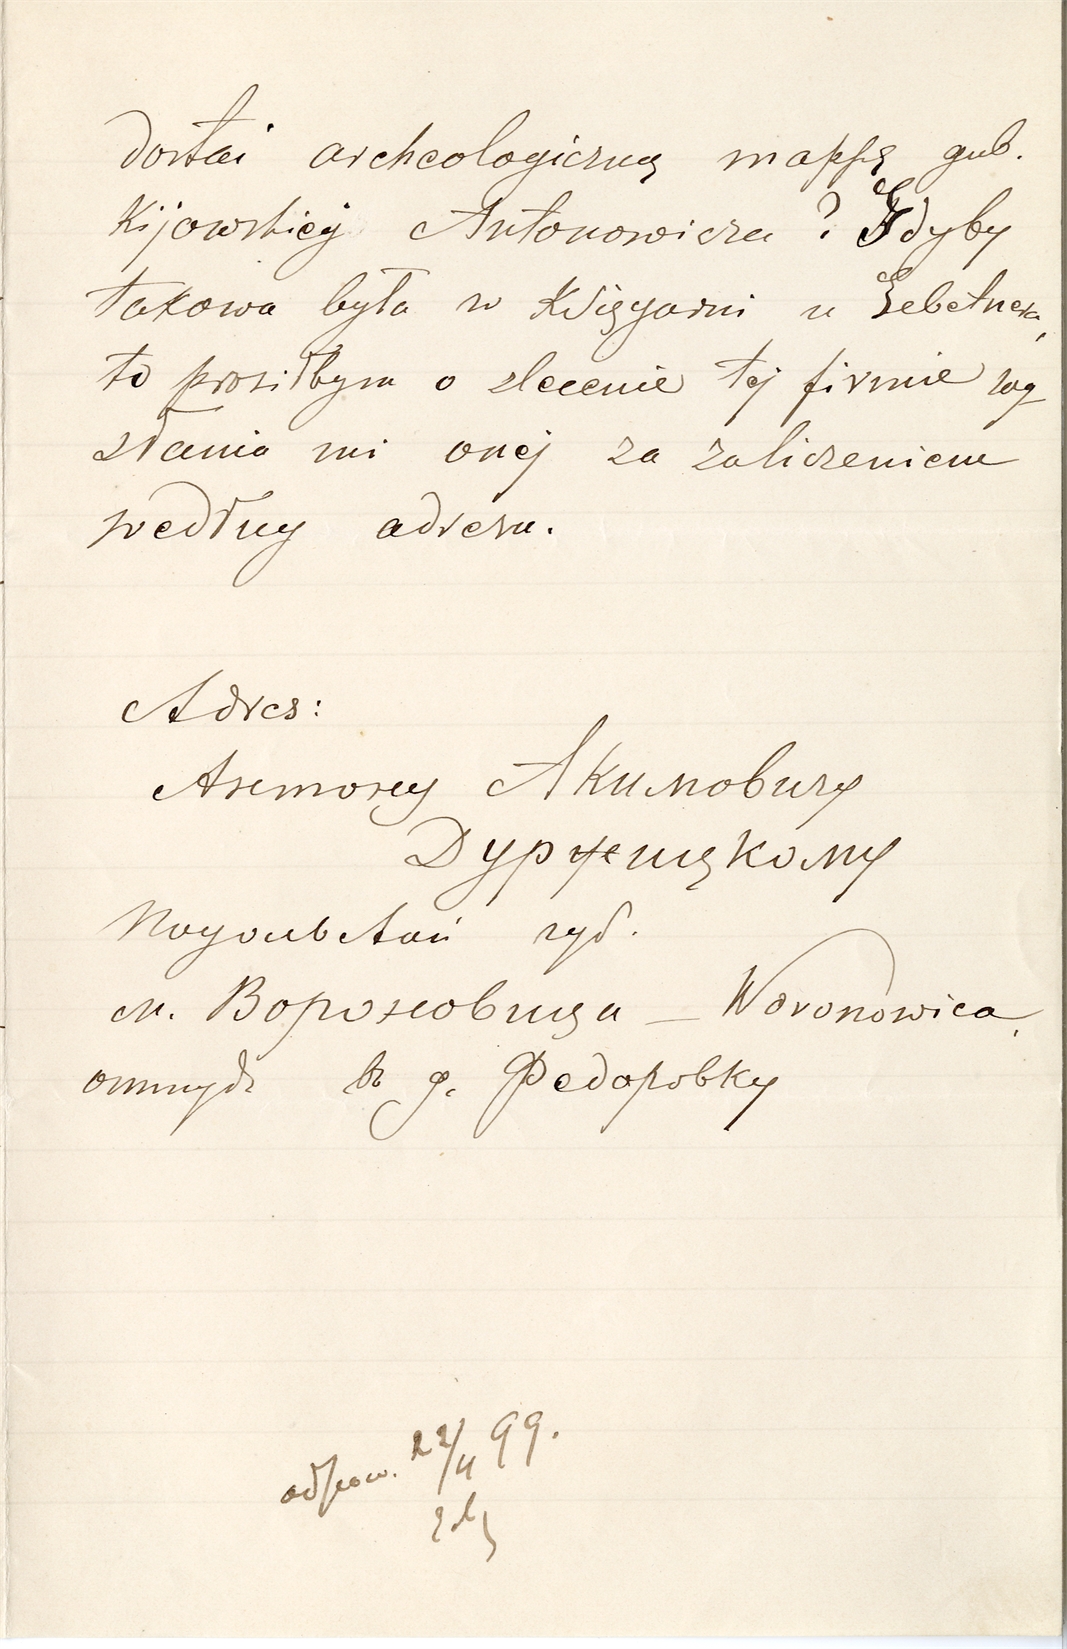 dostać archeologiczną mappę gub.
Kijowskiej Antonowicza? Gdyby
takowa była w Księgarni u Gebetnera,
to prosiłbym o zlecenie tej firmie wy
słania mi onej za zaliczeniem
według adresu.
Adres:
Акимовичу
Подольской губ.
м. Вороновица – Woronowica,
оттуда въ д. Федоровку
odpow. 22/II 99.